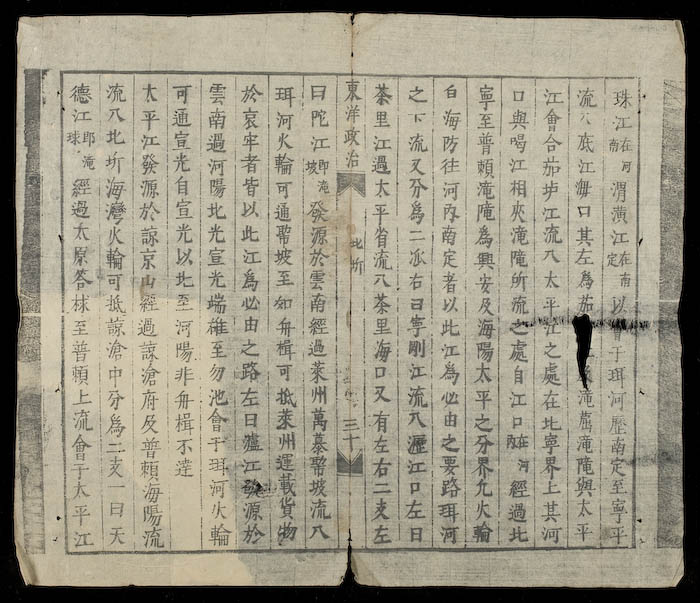 珠江在河南渭潢江在南定以會于珥河歷南定至寧平
流入底江海口其左爲茄江後滝滝唵與太平
江會合茄圹江流入太平江之處在北寧界上其河
口與喝江相夾滝唵所流之處自江口在河內經過北
寧至普賴滝唵爲興安及海陽太平之分界凢火輪
自海防往河內南定者以此江爲必由之要路珥河
之下流又分爲二派右曰寧剛江流入瀝江口左曰
茶里江過太平省流入茶里海口又有左右二支左
東洋政治 北圻 三十
曰陀江即滝坡發源於雲南經過萊州萬慕幫坡流入
珥河火輪可通幫坡至如舟楫可抵萊州運載貨物
於哀牢者皆以此江爲必由之路左曰瀘江發源於
雲南過河陽北光宣光端雄至勿池會于珥河火輪
可通宣光自宣光以北至河陽非舟楫不達
太平江發源於諒京山經過諒滄府及普賴海陽流
流入北圻海灣火輪可抵諒滄中分爲二支一曰天
德江即滝珠經過太原答梂至普賴上流會于太平江